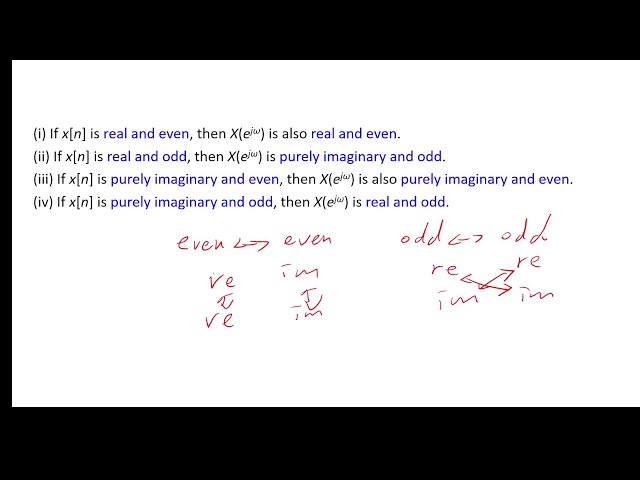 (i) If x[n] is real and even, then X(e^jω) is also real and even.
(ii) If x[n] is real and odd, then X(e^jω) is purely imaginary and odd.
(iii) If x[n] is purely imaginary and even, then X(e^jω) is also purely imaginary and even.
(iv) If x[n] is purely imaginary and odd, then X(e^jω) is real and odd.
even ↔ even odd ↔ odd
re im re re
↕ ↕ im im
re im